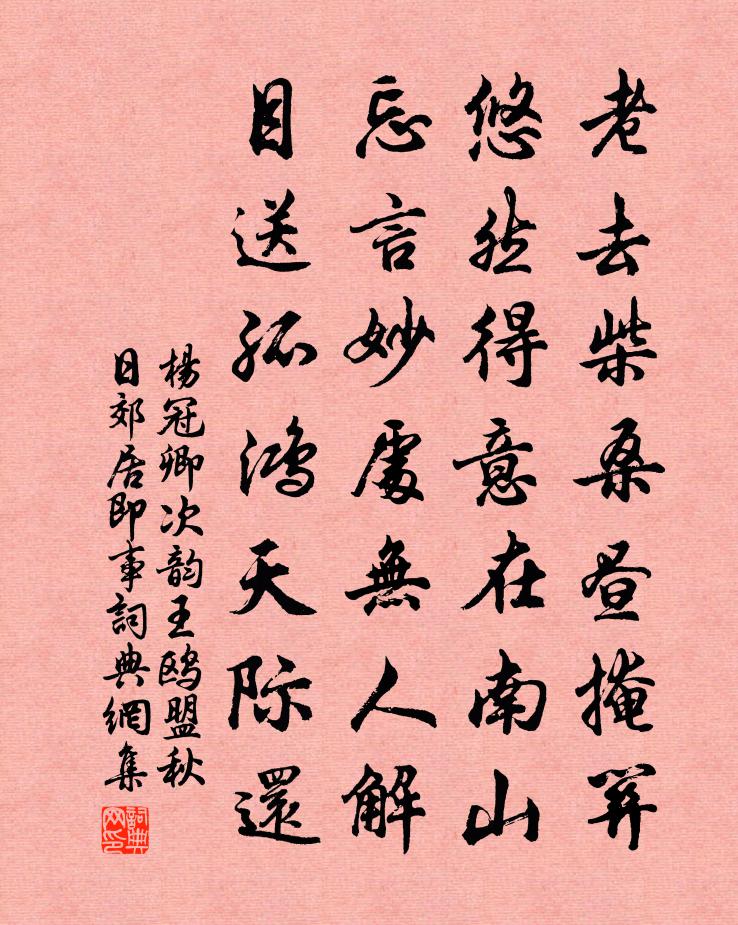 老去柴桑昼掩关
悠然得意在南山
忘言妙處無人解
目送孤鸿天际還
楊冠卿次韵王鸥盟秋
日郊居即事詞典網集
詞典网印